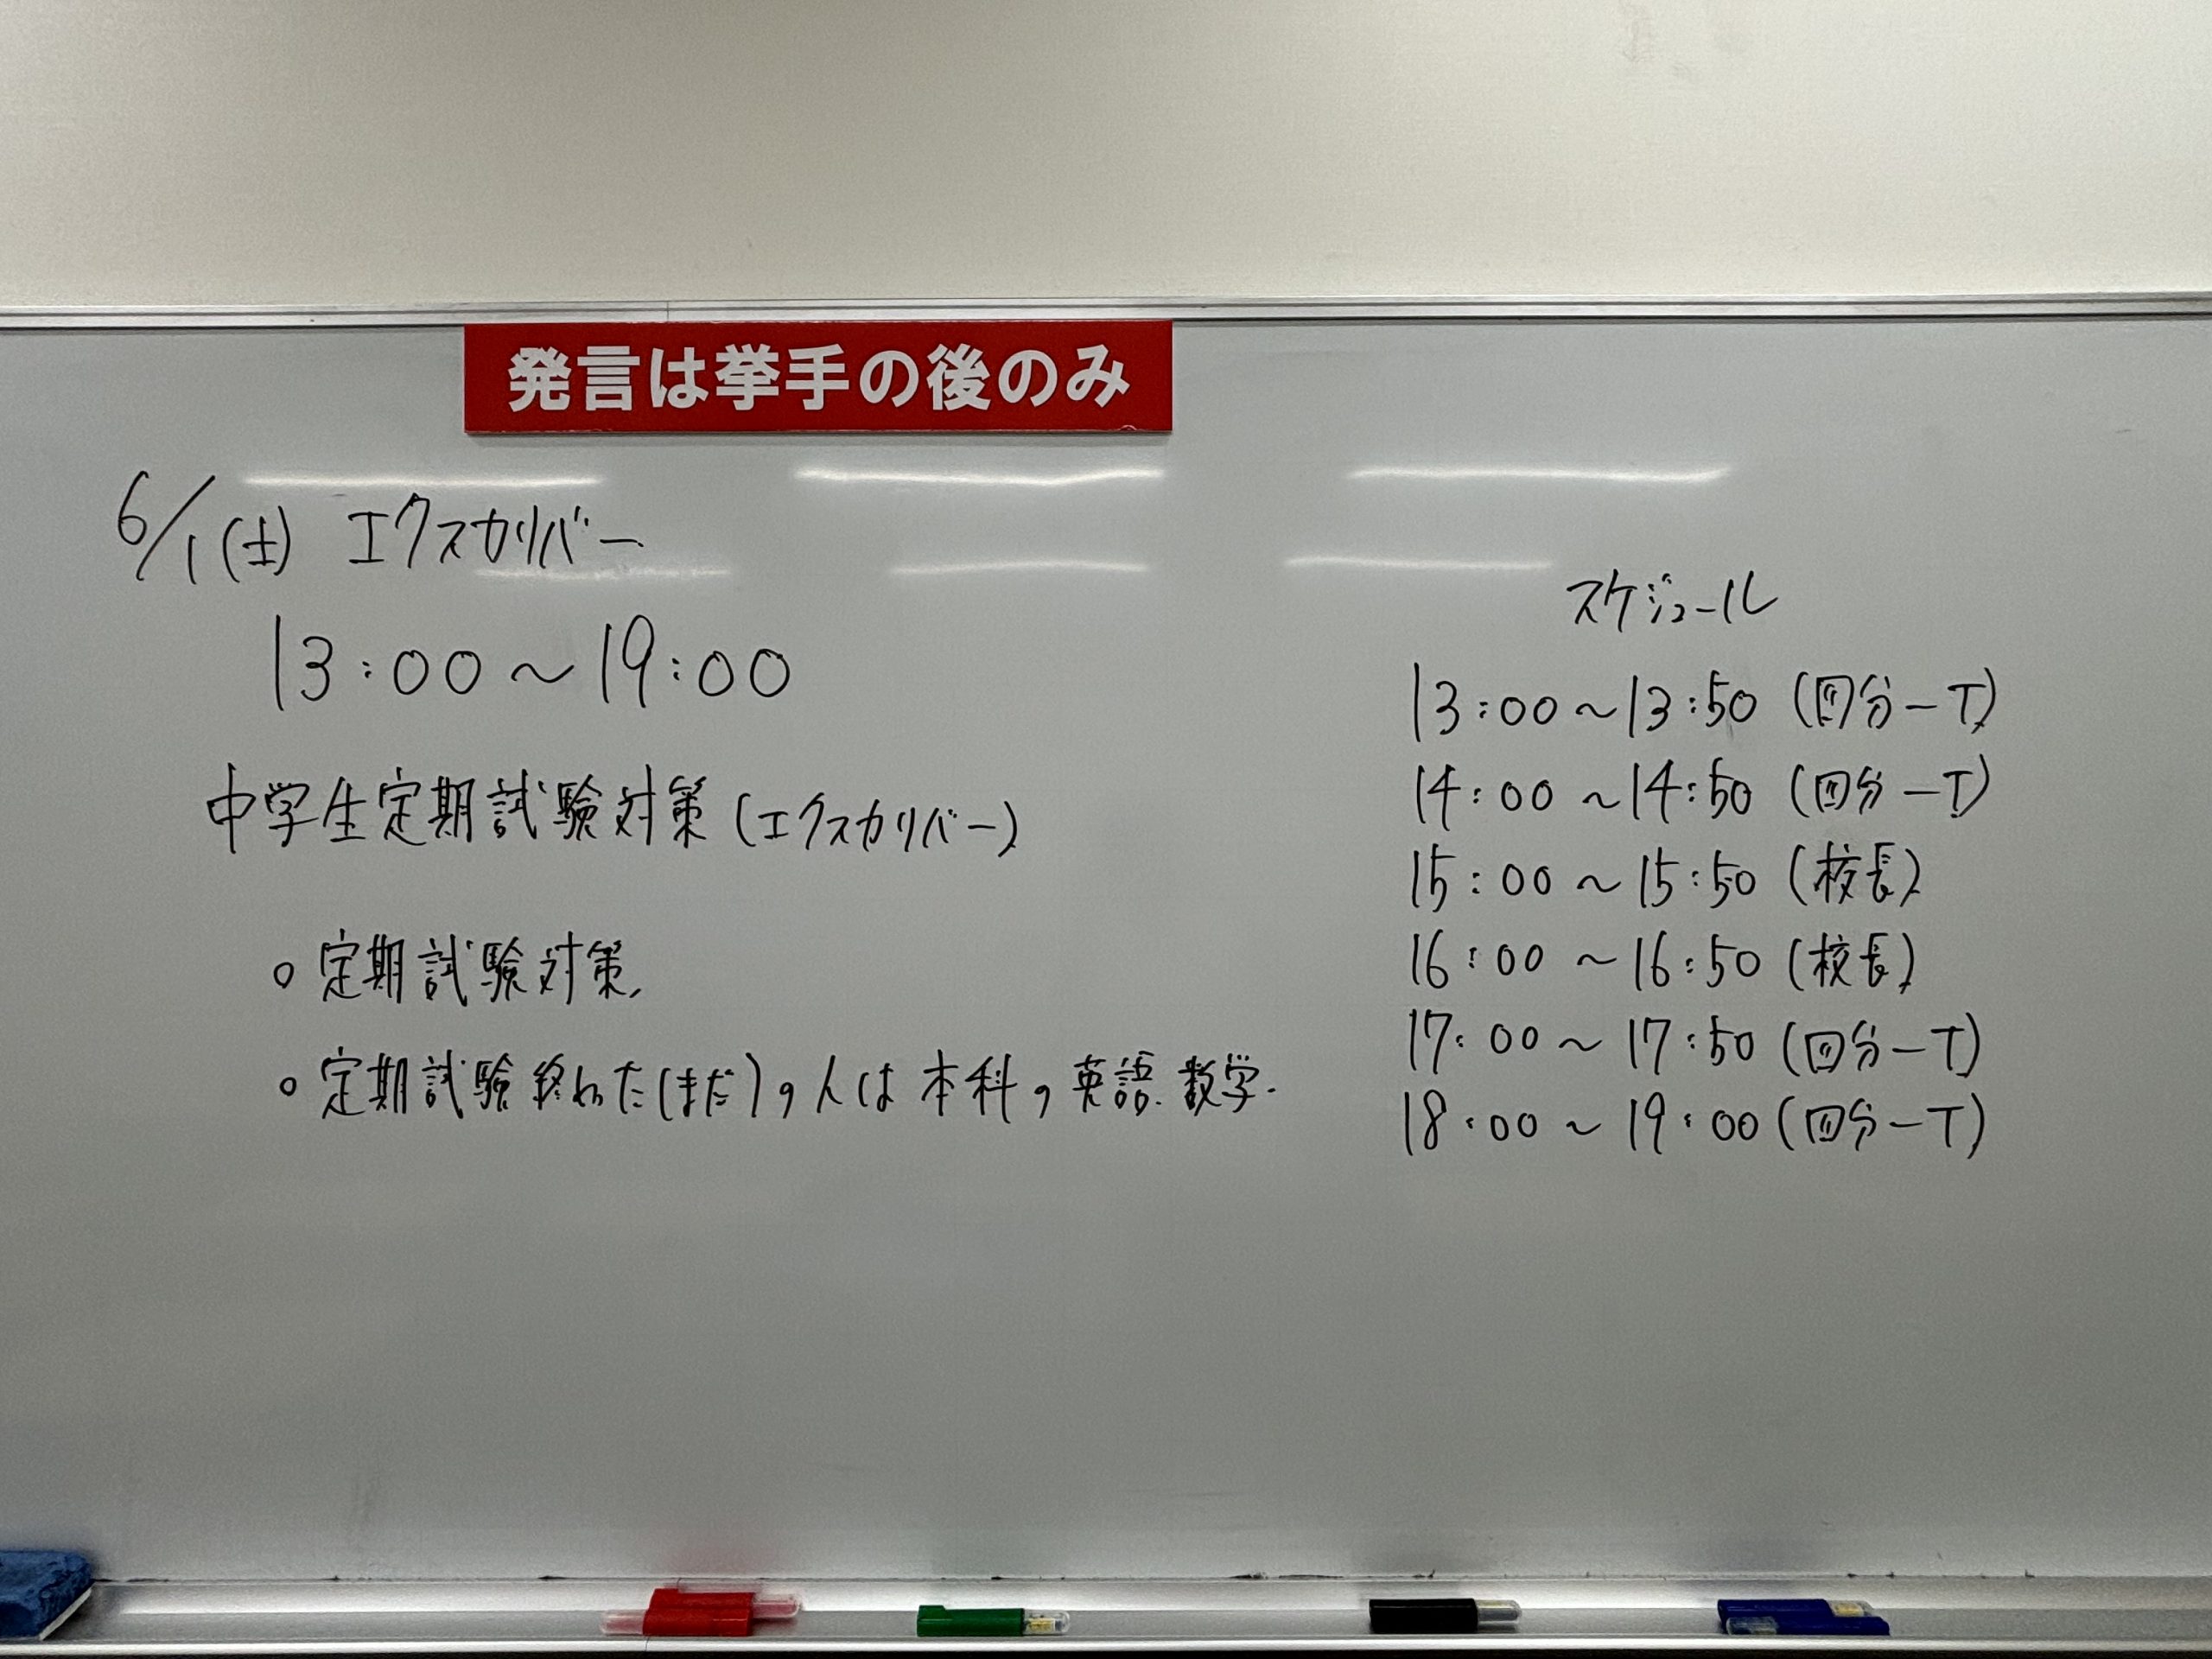 発言は挙手の後のみ
6/1(土) エクスカリバー
13:00～19:00
中学生定期試験対策(エクスカリバー)
○定期試験対策
○定期試験終わった(まだ)の人は本科の英語.数学.
スケジュール
13:00～13:50 (国分-T)
14:00～14:50 (国分-T)
15:00～15:50 (校長)
16:00～16:50 (校長)
17:00～17:50 (国分-T)
18:00～19:00 (国分-T)